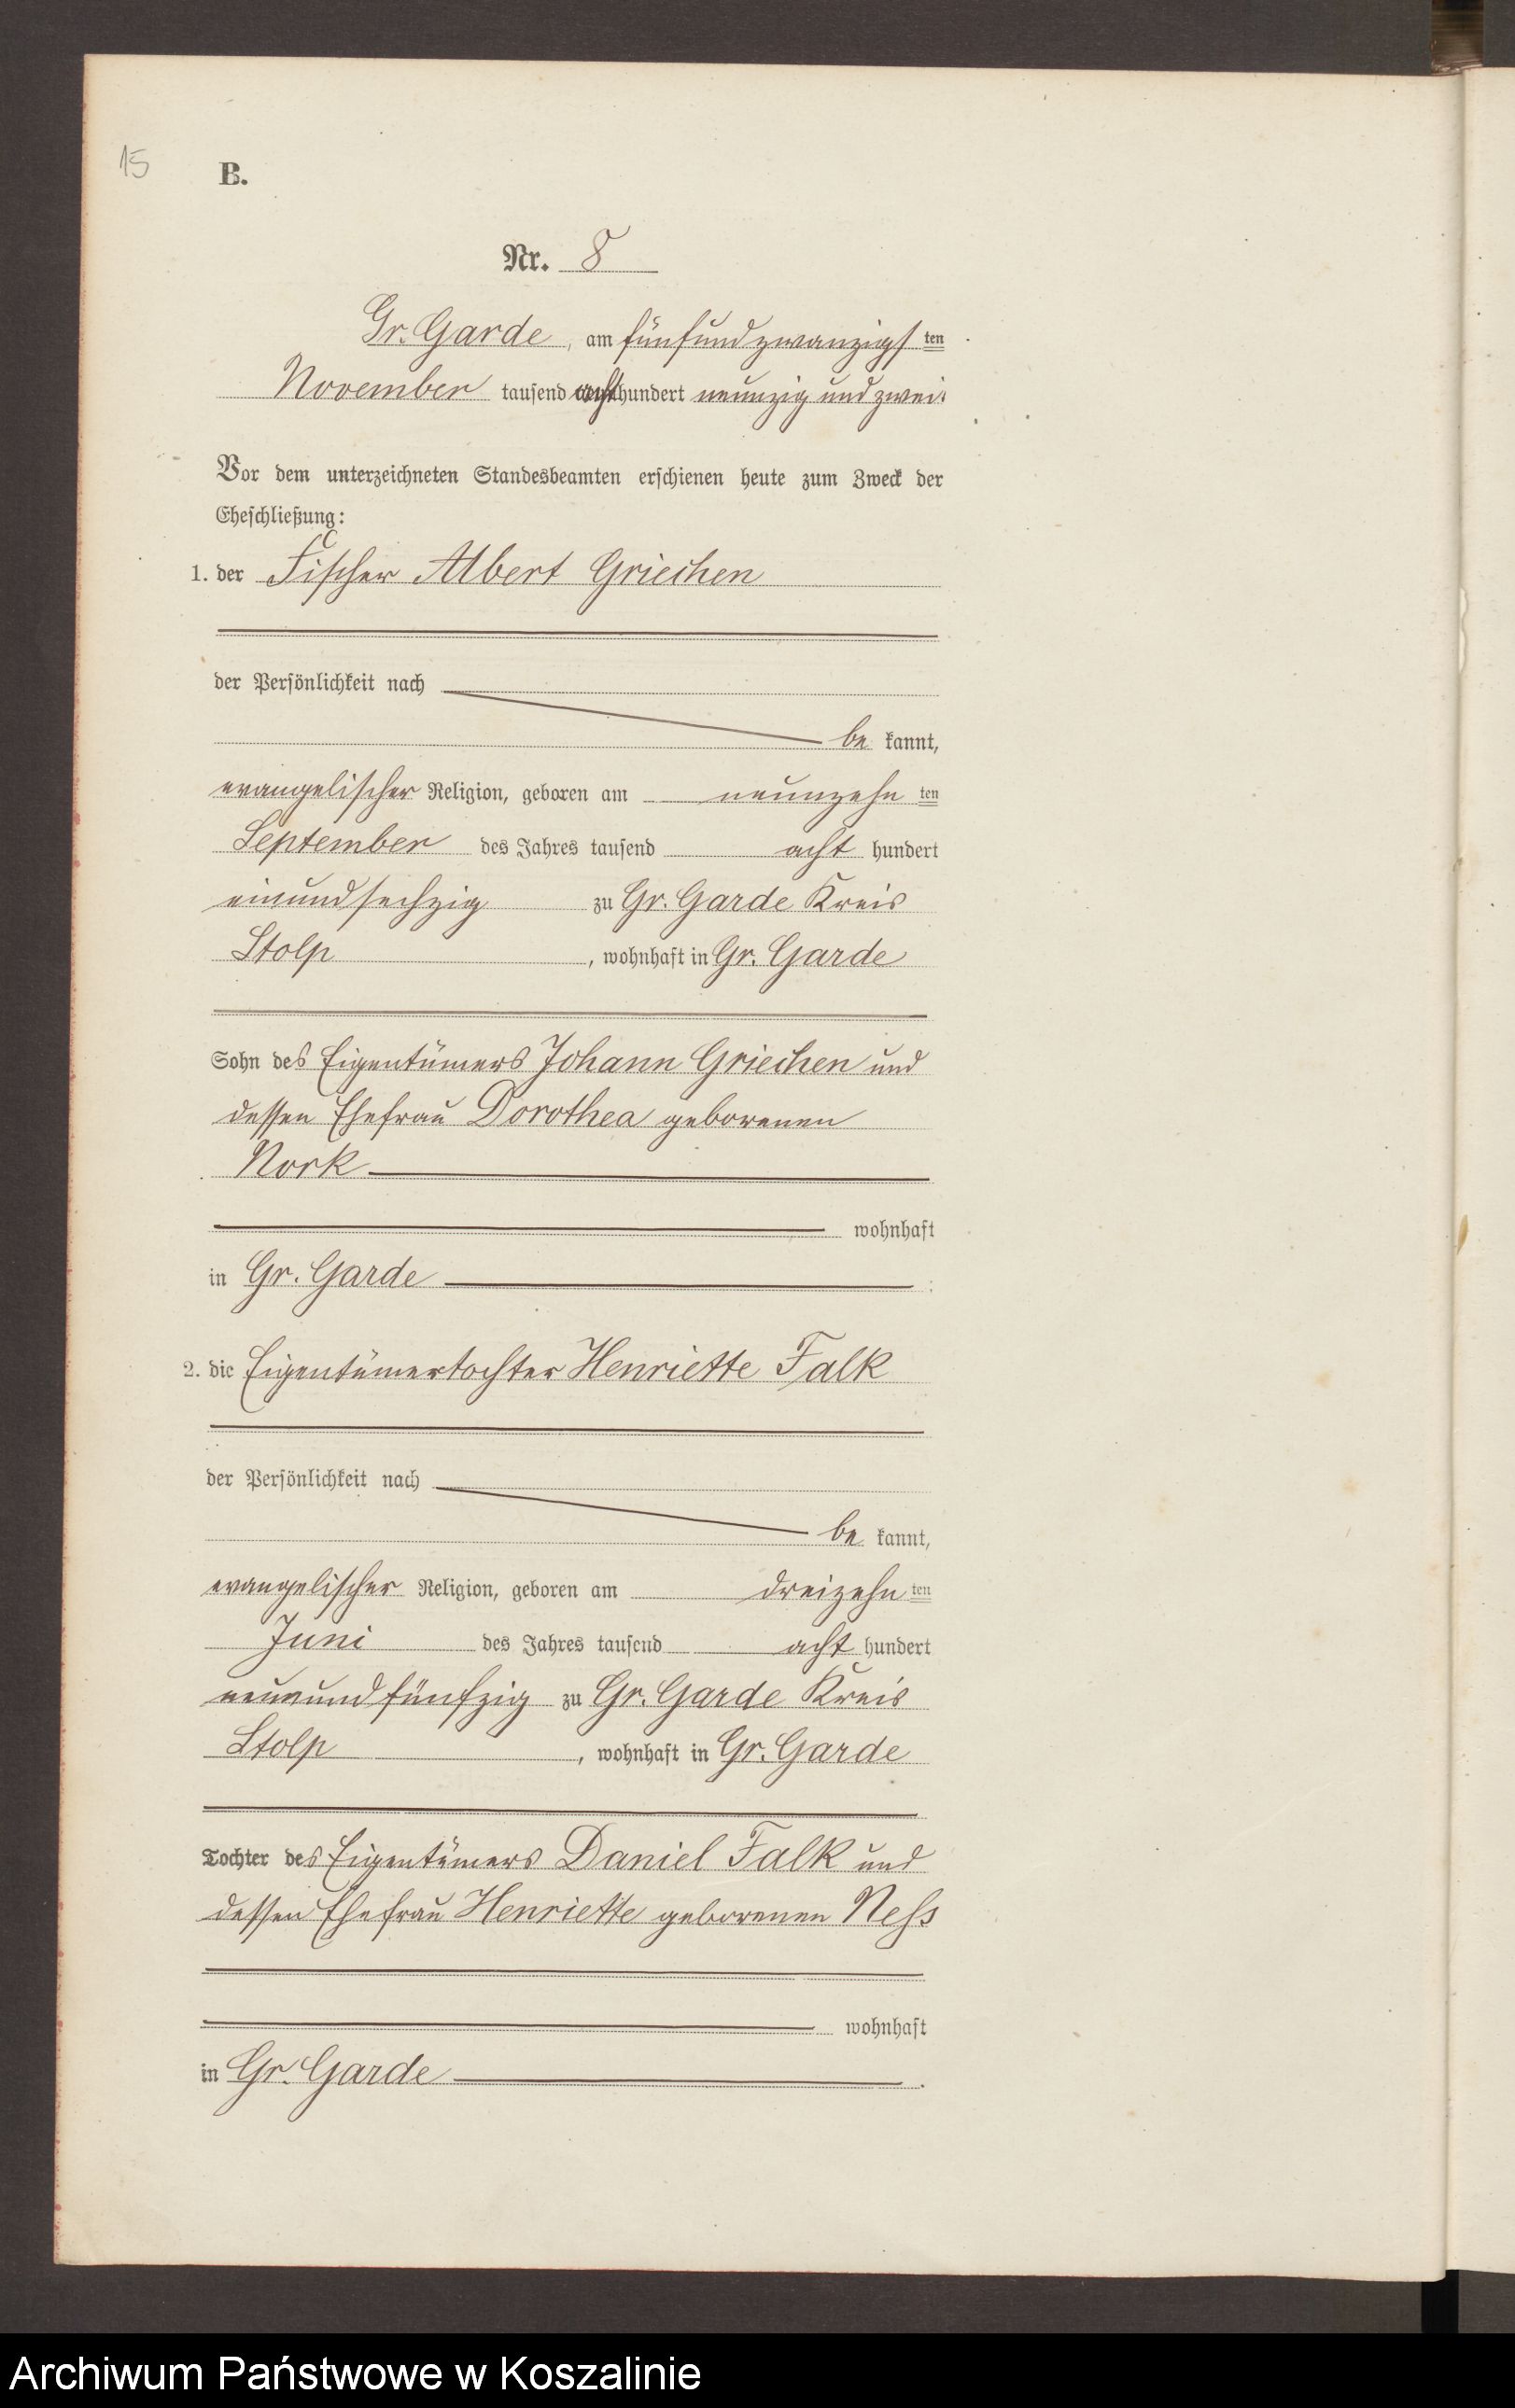 15
B.
Nr. 8
Gr. Garde, am fünfundzwanzigsten
November tausend achthundert neunzig und zwei.
Vor dem unterzeichneten Standesbeamten erschienen heute zum Zweck der
Eheschließung:
1. der Fischer Albert Griechen
der Persönlichkeit nach
be kannt,
evangelischer Religion, geboren am neunzehn ten
September des Jahres tausend acht hundert
einundsechzig zu Gr. Garde Kreis
Stolp, wohnhaft in Gr. Garde
Sohn des Eigentümers Johann Griechen und
dessen Ehefrau Dorothea geborenen
Nork
wohnhaft
in Gr. Garde;
2. die Eigentümertochter Henriette Falk
der Persönlichkeit nach
be kannt,
evangelischer Religion, geboren am dreizehn ten
Juni des Jahres tausend acht hundert
neunundfünfzig zu Gr. Garde Kreis
Stolp, wohnhaft in Gr. Garde
Tochter des Eigentümers Daniel Falk und
dessen Ehefrau Henriette geborenen Ness
wohnhaft
in Gr. Garde.
Archiwum Państwowe w Koszalinie